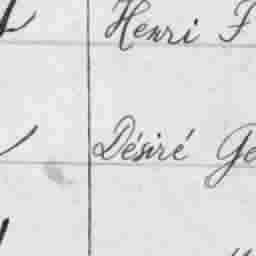 Henri F
Désiré Ge